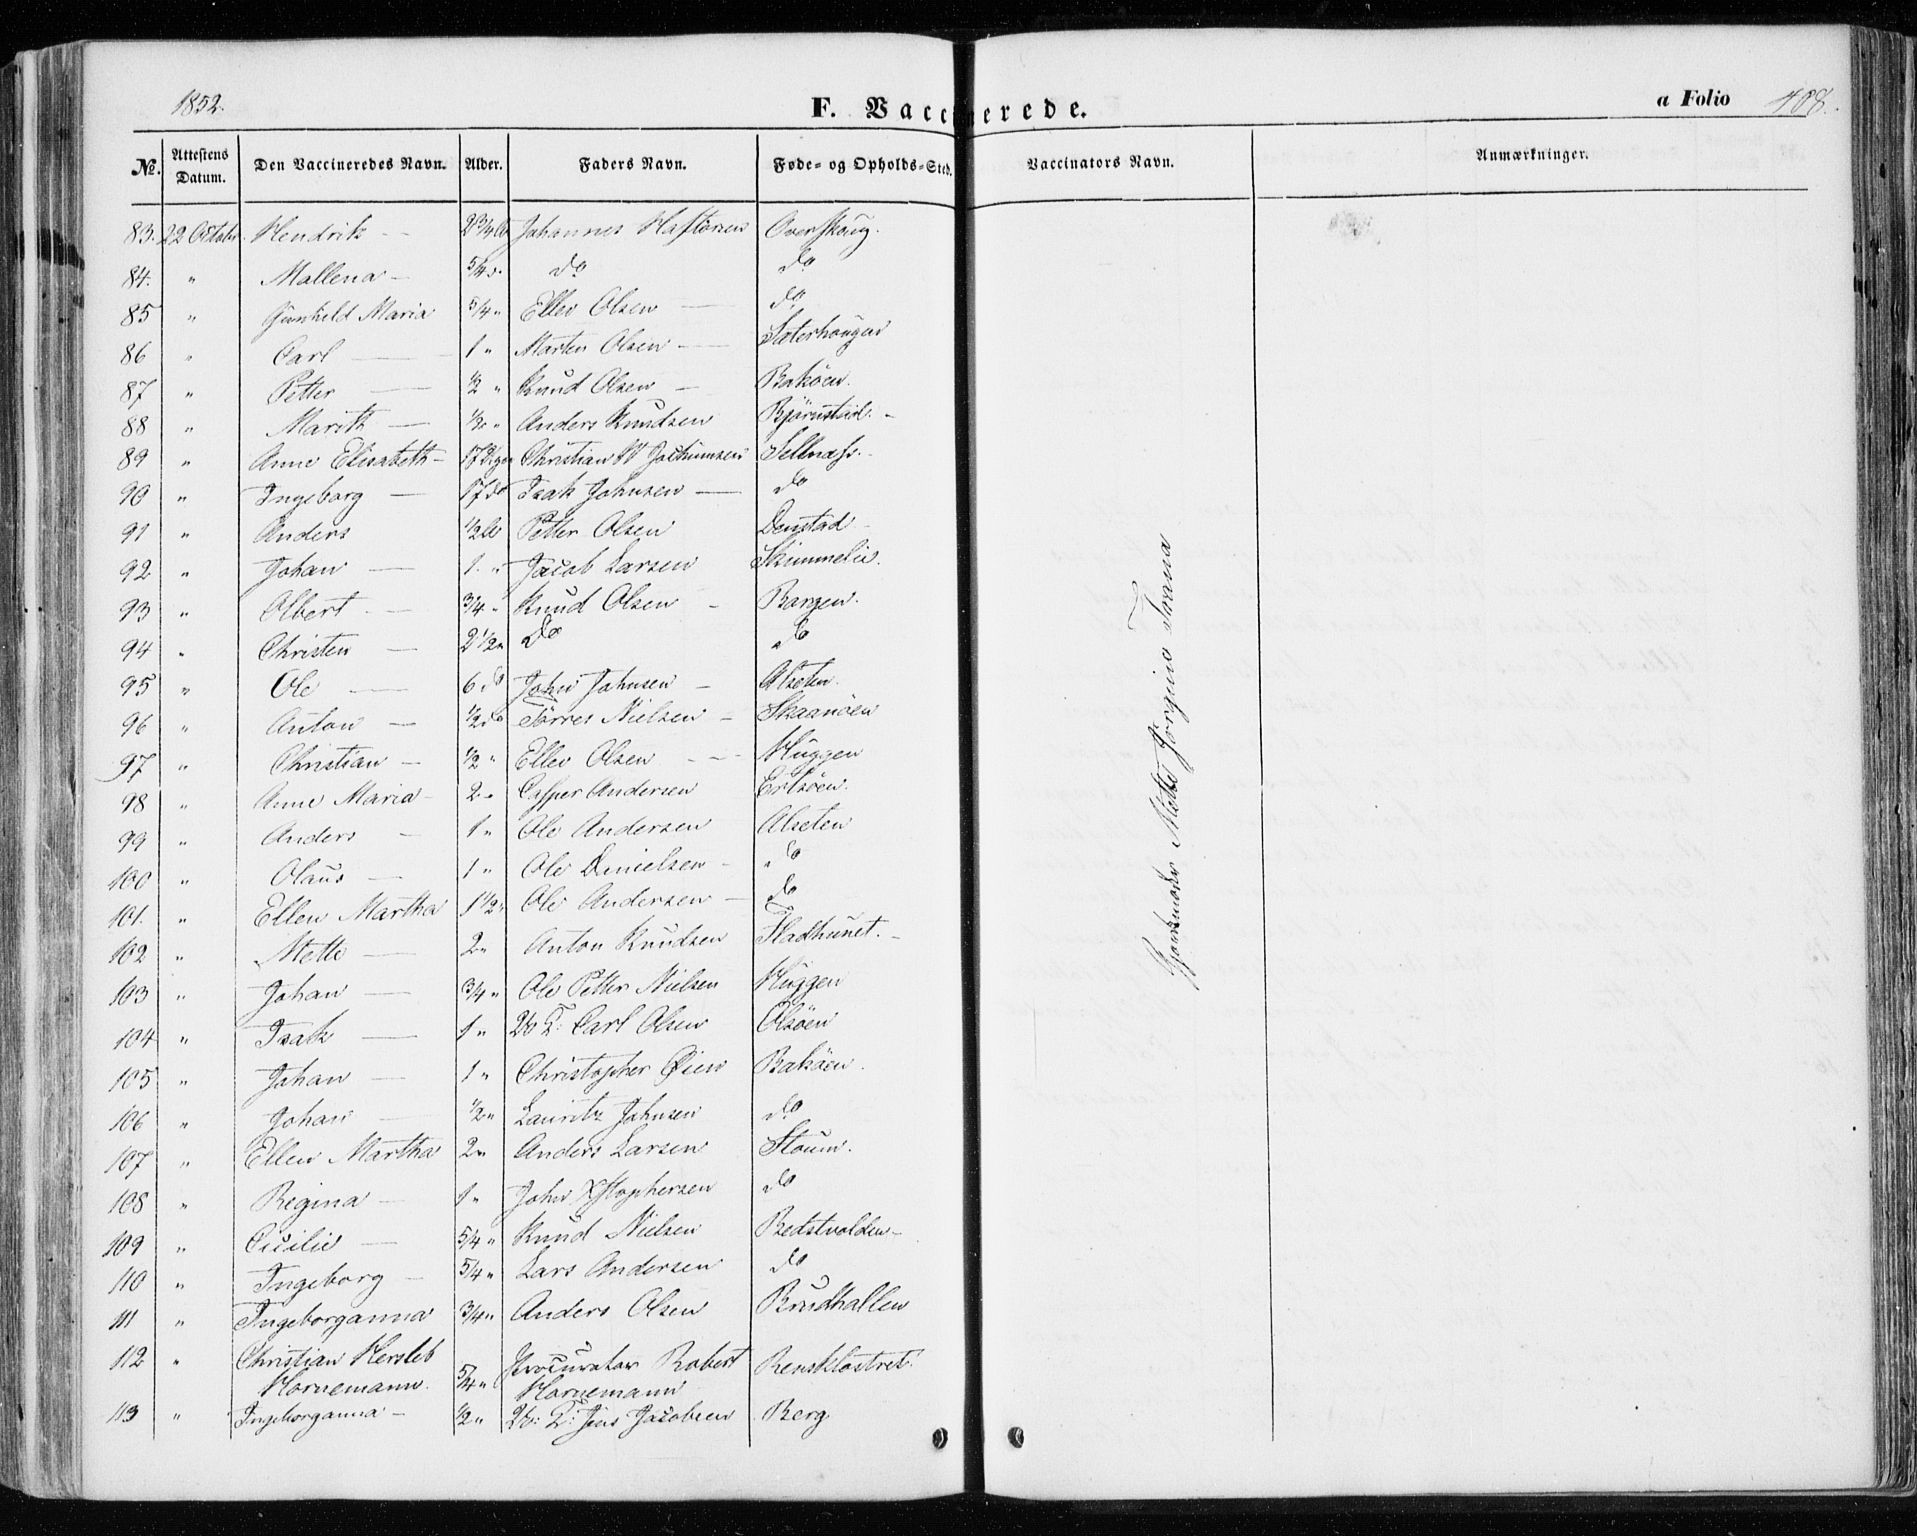 1852.
F. Vaccinerede.
a Folio 408.
No. Attestens Datum. Den Vaccineredes Navn. Alder. Faders Navn. Føde- og Opholds-Sted. Vaccinators Navn. Anmærkninger.
83. 22 Octobr. Hendrik — 2 3/4 Johannes Overskoug.
84. " Mallena — 5/4 do do
85 " Gunhild Maria 5/4 " Ellev Olsen — do
86 " Carl — 1 " Morten Olsen — Sæterhougen
87 " Petter — 1/2 " Knud Olsen — Baköen.
88 " Marith — " Anders Knudsen Bjørnstad. -
89 " Anne Elisabeth - 17 Christian Jochumsen Sellnæss. -
90 " Ingeborg — 17 do Isak Johnsen — do
91 " Anders 1/2 Petter Olsen Donstad -
92 " Johan — 1. " Jacob Larsen Skimmelie.
93 " Olbert — 3/4 " Knud Olsen - Bangen.
94 " Christen — 2 1/2 " Do do
95 " Ole — 6 do John Johnsen - Alseten.
96 " Anton — 1/2 do Torres Nielsen - Skaanöen
97 " Christian — 1/2 " Ellev Olsen — Huggen
98 " Anne Maria - 2 - Casper Andersen Ertsöen.
99 " Anders — 1 " Ole Andersen Alseten
100 " Olaus — 1 " Ole Danielsen - do
101. " Ellen Martha 1 1/2 " Ole Andersen - do
102 " Mette — 2 " Anton Knudsen Fladhunet. -
103 " Johan — 3/4 " Ole Petter Nielsen Huggen
104 " Isak — 1 " Carl Olsen Olsöen
105 " Johan — 1 " Christopher Øien Baköen.
106 " Johan — 1/2 " Lauritz Johnsen do
107 " Ellen Martha 2 " Anders Larsen Floum.
108 " Regina — 1 " John Xstophersen do
109 " Cicilie — 5/4 " Knud Nielsen Bedstvolden -
110 " Ingeborg — 5/4 " Lars Andersen do
111 " Ingeborganna 3/4 " Anders Olsen Brudhallen
112 " Christian Hersleb Hornemann. 5/4 " Procurator Robert Hornemann Rensklostret.
113 " Ingeborganna - 1/2 " Jens Jacobsen Berg
Gjordmoder Mette Jörgine Trana